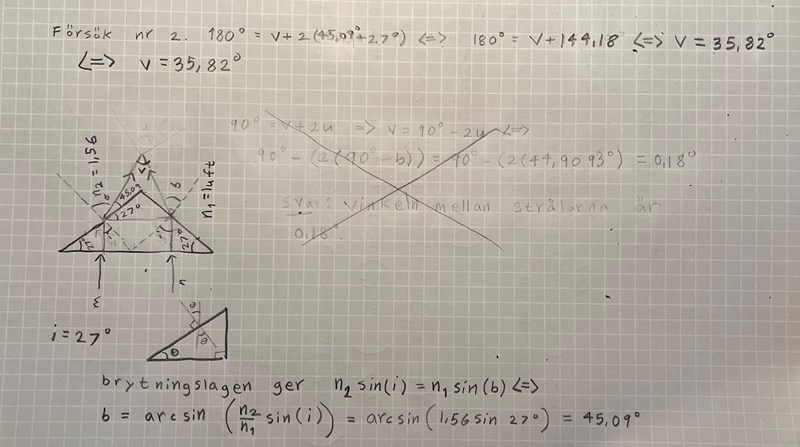 Försök nr 2. 180° = v + 2(45,09° + 27°) <=> 180° = v + 144,18 <=> v = 35,82°
<=> v = 35,82°
90° = v + 2u => v = 90° - 2u <=>
90° - (2(90° - b)) = 90° - (2(44,9093°) = 0,18°
svar: vinkeln mellan strålarna är
0,18°
n₂ = 1,56
n₁ = luft
v
b
b
45,09
27°
27°
27°
m
n
i = 27°
θ
θ
θ
brytningslagen ger n₂ sin(i) = n₁ sin(b) <=>
b = arcsin (n₂/n₁ sin(i)) = arcsin(1,56 sin 27°) = 45,09°